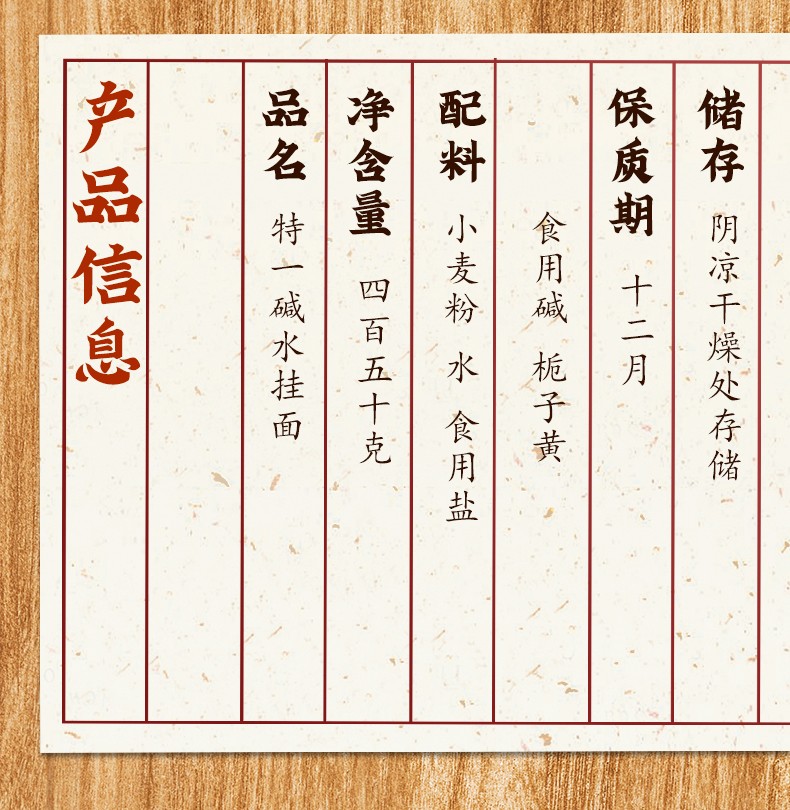 产品信息
品名 特一碱水挂面
净含量 四百五十克
配料 小麦粉 水 食用盐
食用碱 栀子黄
保质期 十二月
储存 阴凉干燥处存储